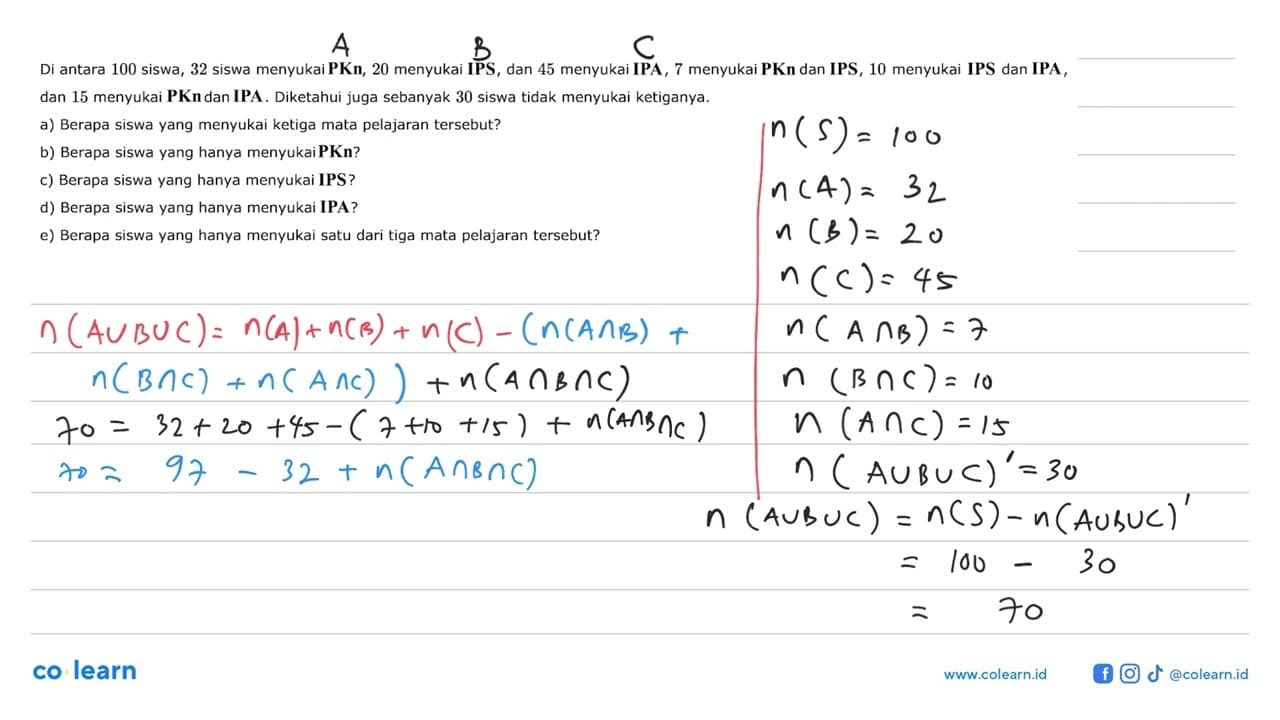 A B C
Di antara 100 siswa, 32 siswa menyukai PKn, 20 menyukai IPS, dan 45 menyukai IPA, 7 menyukai PKn dan IPS, 10 menyukai IPS dan IPA,
dan 15 menyukai PKn dan IPA. Diketahui juga sebanyak 30 siswa tidak menyukai ketiganya.
a) Berapa siswa yang menyukai ketiga mata pelajaran tersebut?
b) Berapa siswa yang hanya menyukai PKn?
c) Berapa siswa yang hanya menyukai IPS?
d) Berapa siswa yang hanya menyukai IPA?
e) Berapa siswa yang hanya menyukai satu dari tiga mata pelajaran tersebut?
n(S) = 100
n(A) = 32
n(B) = 20
n(C) = 45
n(A∩B) = 7
n(B∩C) = 10
n(A∩C) = 15
n(A∪B∪C)' = 30
n(A∪B∪C) = n(S) - n(A∪B∪C)'
= 100 - 30
= 70
n(A∪B∪C) = n(A) + n(B) + n(C) - (n(A∩B) +
n(B∩C) + n(A∩C)) + n(A∩B∩C)
70 = 32 + 20 + 45 - (7 + 10 + 15) + n(A∩B∩C)
70 = 97 - 32 + n(A∩B∩C)
co learn
www.colearn.id
@colearn.id